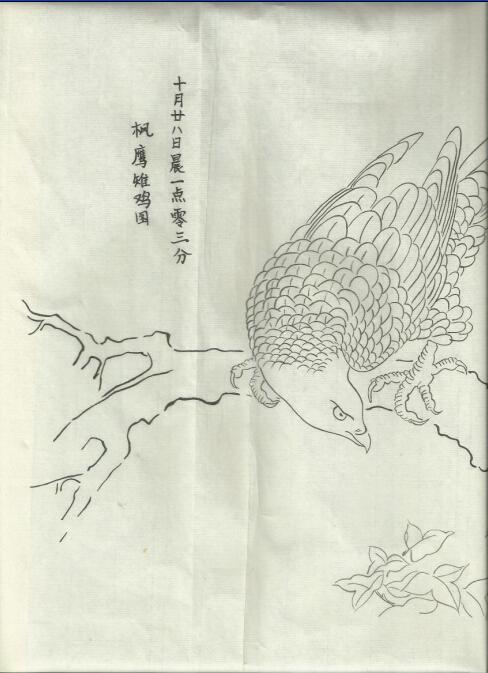 十月廿八日晨一点零三分
枫鹰雉鸡图